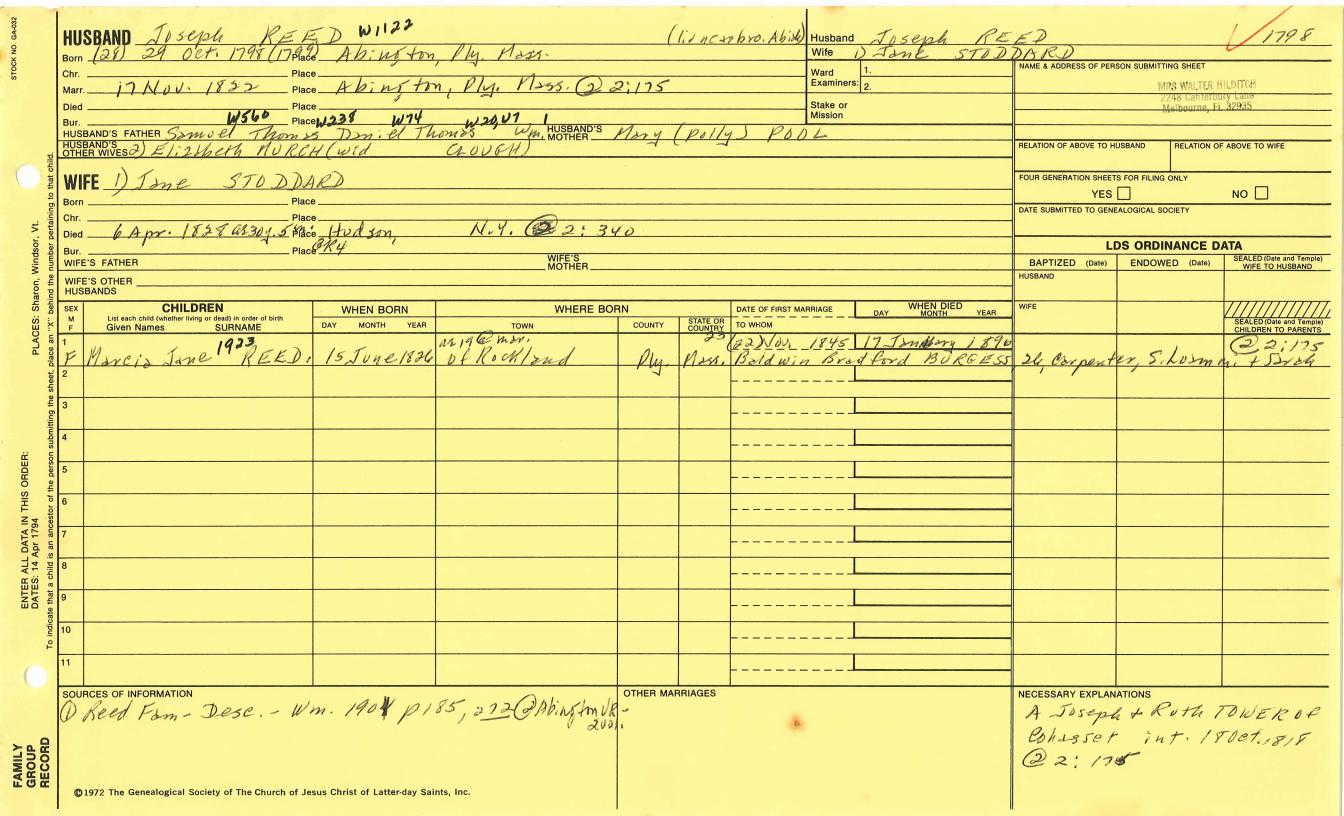 STOCK NO. GA-032
HUSBAND Joseph REED W1122
Husband Joseph REED 1798
Born (28) 29 Oct. 1798 (1799) Place Abington, Ply. Mass.
Wife 1) Jane STODDARD
Chr. Place
Marr. 17 Nov. 1822 Place Abington, Ply. Mass. @ 2:175
Ward Examiners: 1. 2.
Died Place
Stake or Mission
Bur. Place
W560 W238 W74 W20, V7 1
HUSBAND'S FATHER Samuel Thomas Daniel Thomas Wm. HUSBAND'S MOTHER Mary (Polly) POOL
HUSBAND'S OTHER WIVES 2) Elizabeth MURCH (wid CLOUGH)
NAME & ADDRESS OF PERSON SUBMITTING SHEET
MRS WALTER HILDITCH
2248 Canterbury Lane
Melbourne, Fl. 32935
RELATION OF ABOVE TO HUSBAND RELATION OF ABOVE TO WIFE
FOUR GENERATION SHEETS FOR FILING ONLY
YES NO
DATE SUBMITTED TO GENEALOGICAL SOCIETY
WIFE 1) Jane STODDARD
Born Place
Chr. Place
Died 6 Apr. 1828 Place Hudson, N.Y. 2: 340
Bur. Place GR4
WIFE'S FATHER WIFE'S MOTHER
WIFE'S OTHER HUSBANDS
LDS ORDINANCE DATA
BAPTIZED (Date) ENDOWED (Date) SEALED (Date and Temple) WIFE TO HUSBAND
HUSBAND
WIFE
SEALED (Date and Temple) CHILDREN TO PARENTS
SEX M F
CHILDREN
List each child (whether living or dead) in order of birth
Given Names SURNAME
WHEN BORN
DAY MONTH YEAR
WHERE BORN
TOWN COUNTY STATE OR COUNTRY
DATE OF FIRST MARRIAGE
TO WHOM
WHEN DIED
DAY MONTH YEAR
1 1923 ae 19 @ mar. 23 22 Nov 1845 17 January 1890 @ 2:175
F Marcia Jane REED. 15 June 1826 of Rockland Ply. Mass. Baldwin Bradford BURGESS, 26, Carpenter, S. + Sarah
2
3
4
5
6
7
8
9
10
11
SOURCES OF INFORMATION
① Reed Fam- Desc. - Wm. 1901 p185, 272 ② Abington VR- 2vol.
OTHER MARRIAGES
NECESSARY EXPLANATIONS
A Joseph + Ruth TOWER of
Cohasset int. 18 Oct. 1818
@ 2: 175
©1972 The Genealogical Society of The Church of Jesus Christ of Latter-day Saints, Inc.
FAMILY GROUP RECORD
ENTER ALL DATA IN THIS ORDER:
DATES: 14 Apr 1794
PLACES: Sharon, Windsor, Vt.
To indicate that a child is an ancestor of the person submitting the sheet, place an "X" behind the number pertaining to that child.